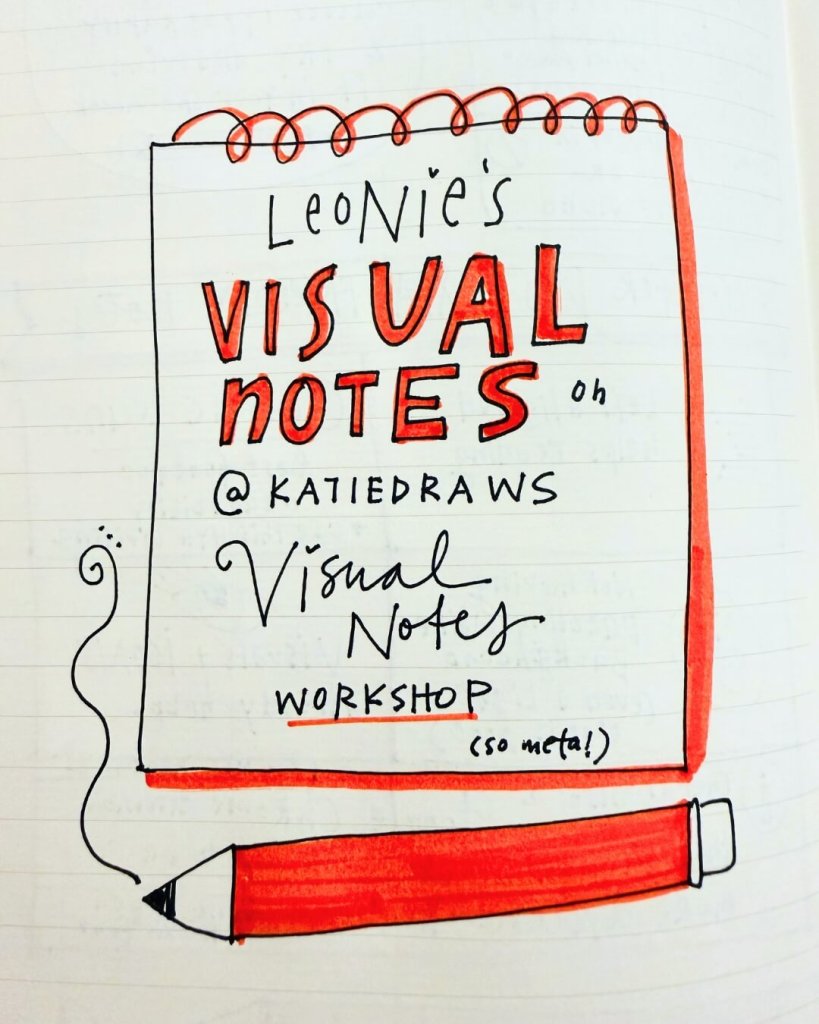 Leonie's
VISUAL
NOTES oh
@KATIEDRAWS
Visual
Notes
WORKSHOP
(so meta!)